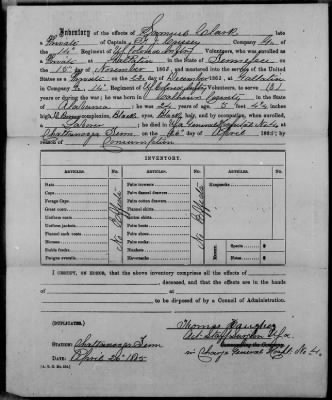 Inventory of the effects of Samuel Clark late
a Private of Captain Company G,
14th Regiment of U.S. Colored Infty Volunteers, who was enrolled as
Private at Gallatin in the State of Tennessee on
the 15th day of November 186, and mustered into the service of the United
States as a Private on the day of December 186, at Gallatin
in Company G, 14th Regiment of Volunteers, to serve (3)
years or during the war; he was born in County in the State
of Alabama; he was years of age, 5 feet inches
high, complexion, Black eyes, Black hair, and by occupation, when enrolled,
a Laborer; he died in General Hospital No 4, at
Chattanooga Tenn on the 26th day of April 1865; by
reason of Consumption
INVENTORY.
ARTICLES. No. ARTICLES. No. ARTICLES. No.
Hats Pairs trowsers Knapsacks
Caps Pairs flannel drawers
Forage Caps Pairs cotton drawers
Great coats Flannel shirts
Uniform coats Cotton shirts
Uniform jackets Pairs boots
Flannel sack coats Pairs shoes
Blouses Pairs socks
Stable frocks Blankets Money. Specie $
Fatigue overalls Haversacks Notes $
No Effects
No Effects
I CERTIFY, ON HONOR, that the above inventory comprises all the effects of
deceased, and that the effects are in the hands
of at
to be disposed of by a Council of Administration.
(DUPLICATES.)
Thomas
Act Staff Surgeon U.S.A.
STATION: Chattanooga Tenn
in Charge General Hospt. No 4.
DATE: April 26th 1865